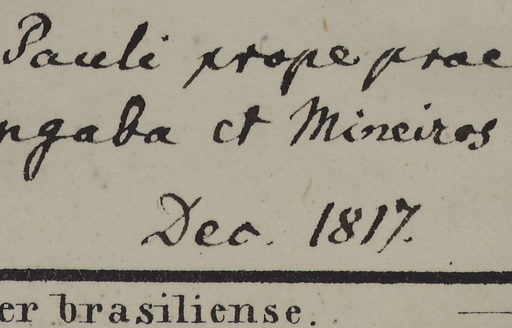 Pauli prope prae
ngaba et Mineiros
Dec. 1817.
er brasiliense.